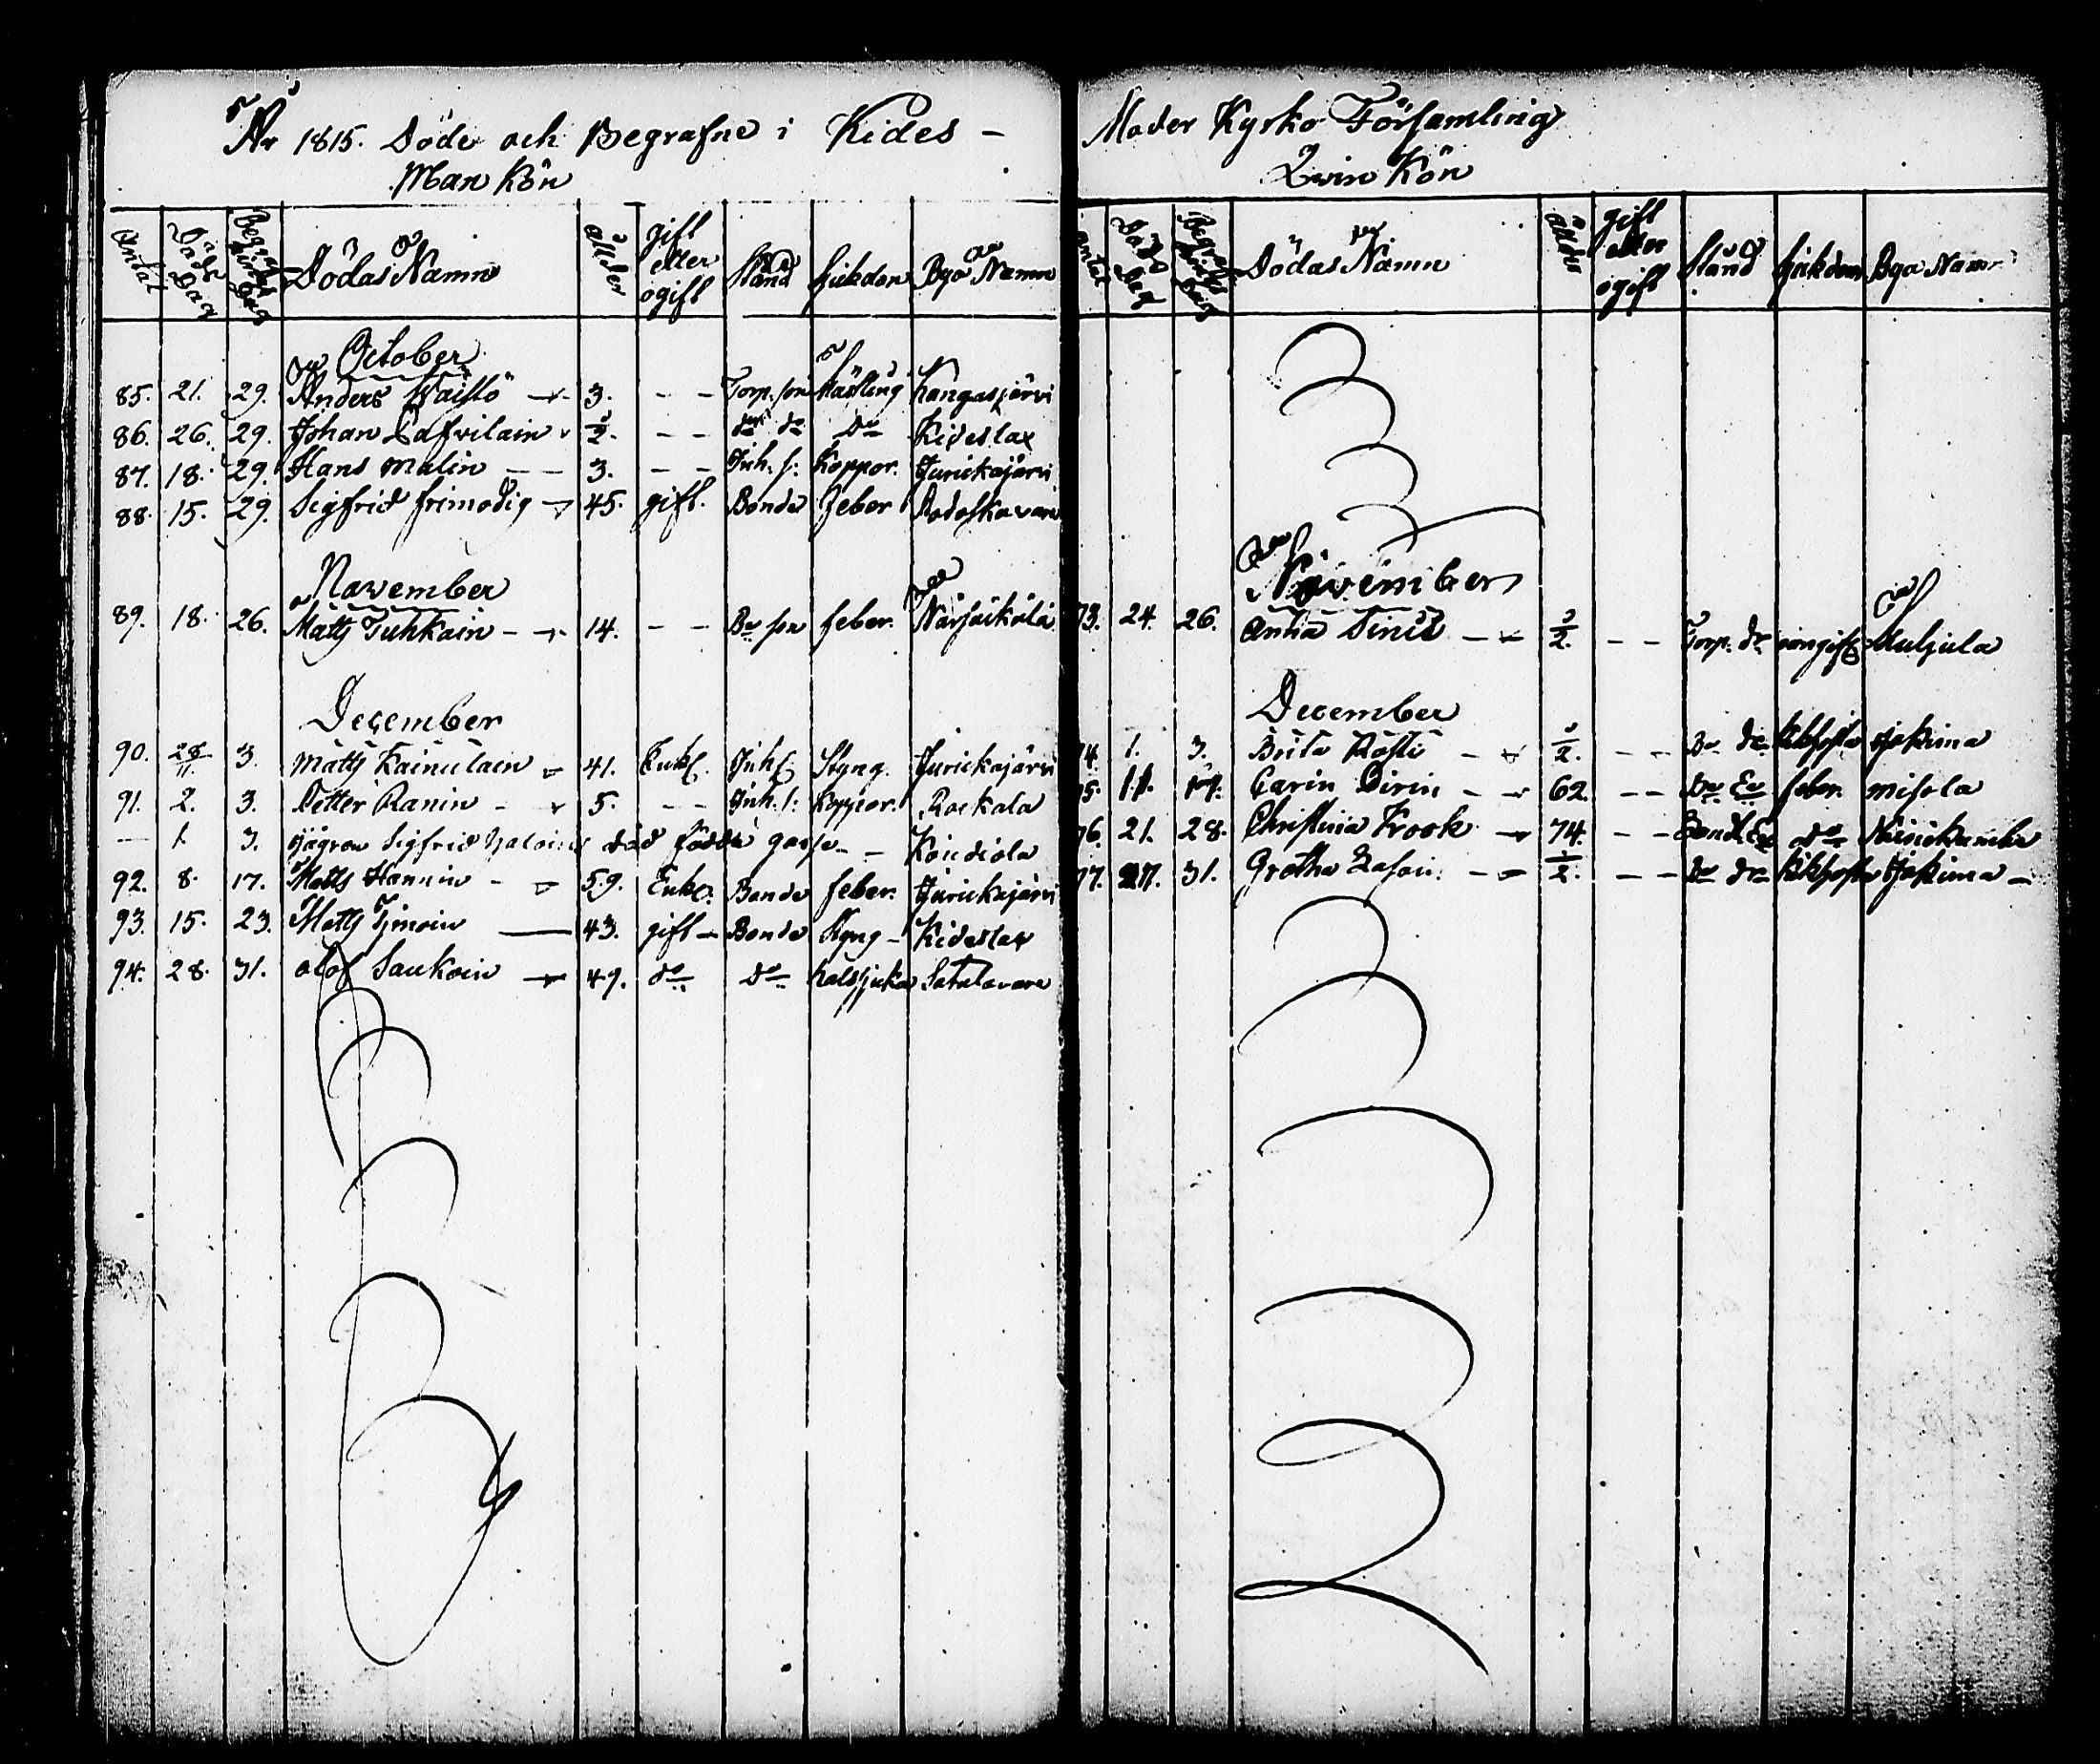 År 1815. Döde och Begrafne i Kides –
Man Kön
Antal Döds Dag Begrafnings Dag Dödas Namn ålder gift eller ogift Stånd Sjukdom Bya Namn
October
85. 21. 29. Anders Waistö 3. – – Torp. son Mässling Kangasjärvi
86. 26. 29. Johan Lafvilain ½. – – do do do Kideslax
87. 18. 29. Hans Malin – – 3. – – Inh. s: Koppor. Juurickajärvi
88. 15. 29. Sigfrid frimodig 45. gift. Bonde feber
November
89. 18. 26. Matts Tuhkain – 14. – – Be son feber. Närsäkälä
December
90. 28/11. 3. Matts Kainulain 41. Enkl. Inh. Styng. Jurickajärvi
91. 2. 3. Petter Ranin – 5. – – Inh. s: Koppor. Rockala
– 1. 3. Sigfrid död födde gosse – – Koiviola
92. 8. 17. Matts Hannin – 59. Enkl. Bonde feber. Jurickajärvi
93. 15. 23. Matts 43. gift – Bonde Styng – Kideslax
94. 28. 31. Olof Saukoin 49. do do halssjuka Satulavara
Moder Kyrko Församling
Qwin Kön
antal Döds Dag Begrafnings Dag Dödas Namn ålder gift eller ogift Stånd Sjukdom Bya Namn
November
73. 24. 26. Anna Sinis – ½. – – Torp. dr Muljula
December
74. 1. 3. Brita – ½. – – Be dr kikhosta
75. 11. 17. Carin Dirin – 62. – – Be En feber. Misola
76. 21. 28. Christina Krook 74. – – Bond. En do
77. 27. 31. Gretha – ½. – – Be dr kikhosta